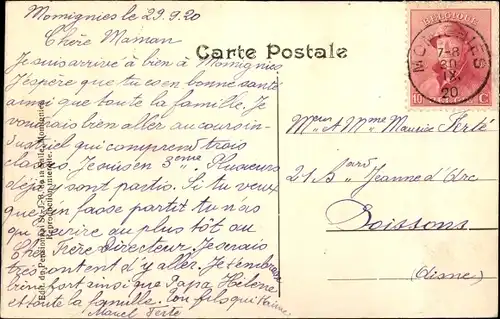 Momignies le 29.9.20
Chère Maman
Je suis arrivé à bien à Momignies
J'espère que tu es en bonne santé
ainsi que toute la famille. Je
voudrais bien aller au cours in-
dustriel qui comprend trois
classes. Je suis en 3ème. Plusieurs
déjà y sont partis. Si tu veux
que j'en fasse partit tu n'as
qu'écrire au plus tôt au
Cher Frère Directeur. Je serais
très content d'y aller. Je t'embrasse
bien fort ainsi que Papa, Hélène
et toute la famille. Ton fils qui t'aime
Marcel Ferté
Carte Postale
BELGIQUE
MOMIGNIES
7-8
30
IX
20
10 C
Mr A Mme Maurice Ferté
21 Bard Jeanne d'Arc
Soissons
(Aisne)
Reproduction interdite.